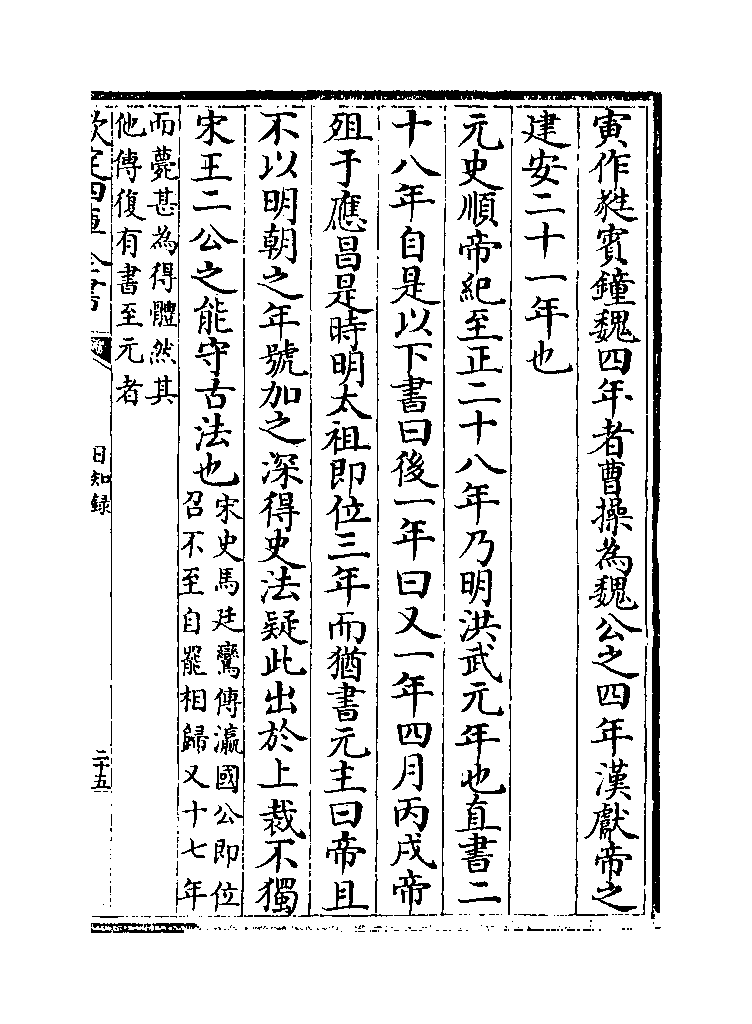 寅作蕤賓鐘魏四年者曹操為魏公之四年漢獻帝之
建安二十一年也
元史順帝紀至正二十八年乃明洪武元年也直書二
十八年自是以下書曰後一年曰又一年四月丙戌帝
殂于應昌是時明太祖即位三年而猶書元主曰帝且
不以明朝之年號加之深得史法疑此出於上裁不獨
宋王二公之能守古法也
宋史馬廷鸞傳瀛國公即位
召不至自罷相歸又十七年
而薨甚為得體然其
他傳復有書至元者
欽定四庫全書
日知録
二十五